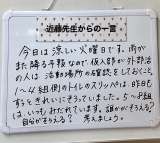 近藤先生からの一言
今日は涼しい火曜日です。雨が
また降る予報なので、仮入部か外部活
の人は活動場所の確認をしておこう。
組側のトイレのスリッパは昨日
きれいにそろっていました。5〜8組
は、いつもみだれています。誰かがそろえる?
自分がそろえる? 考えましょう。